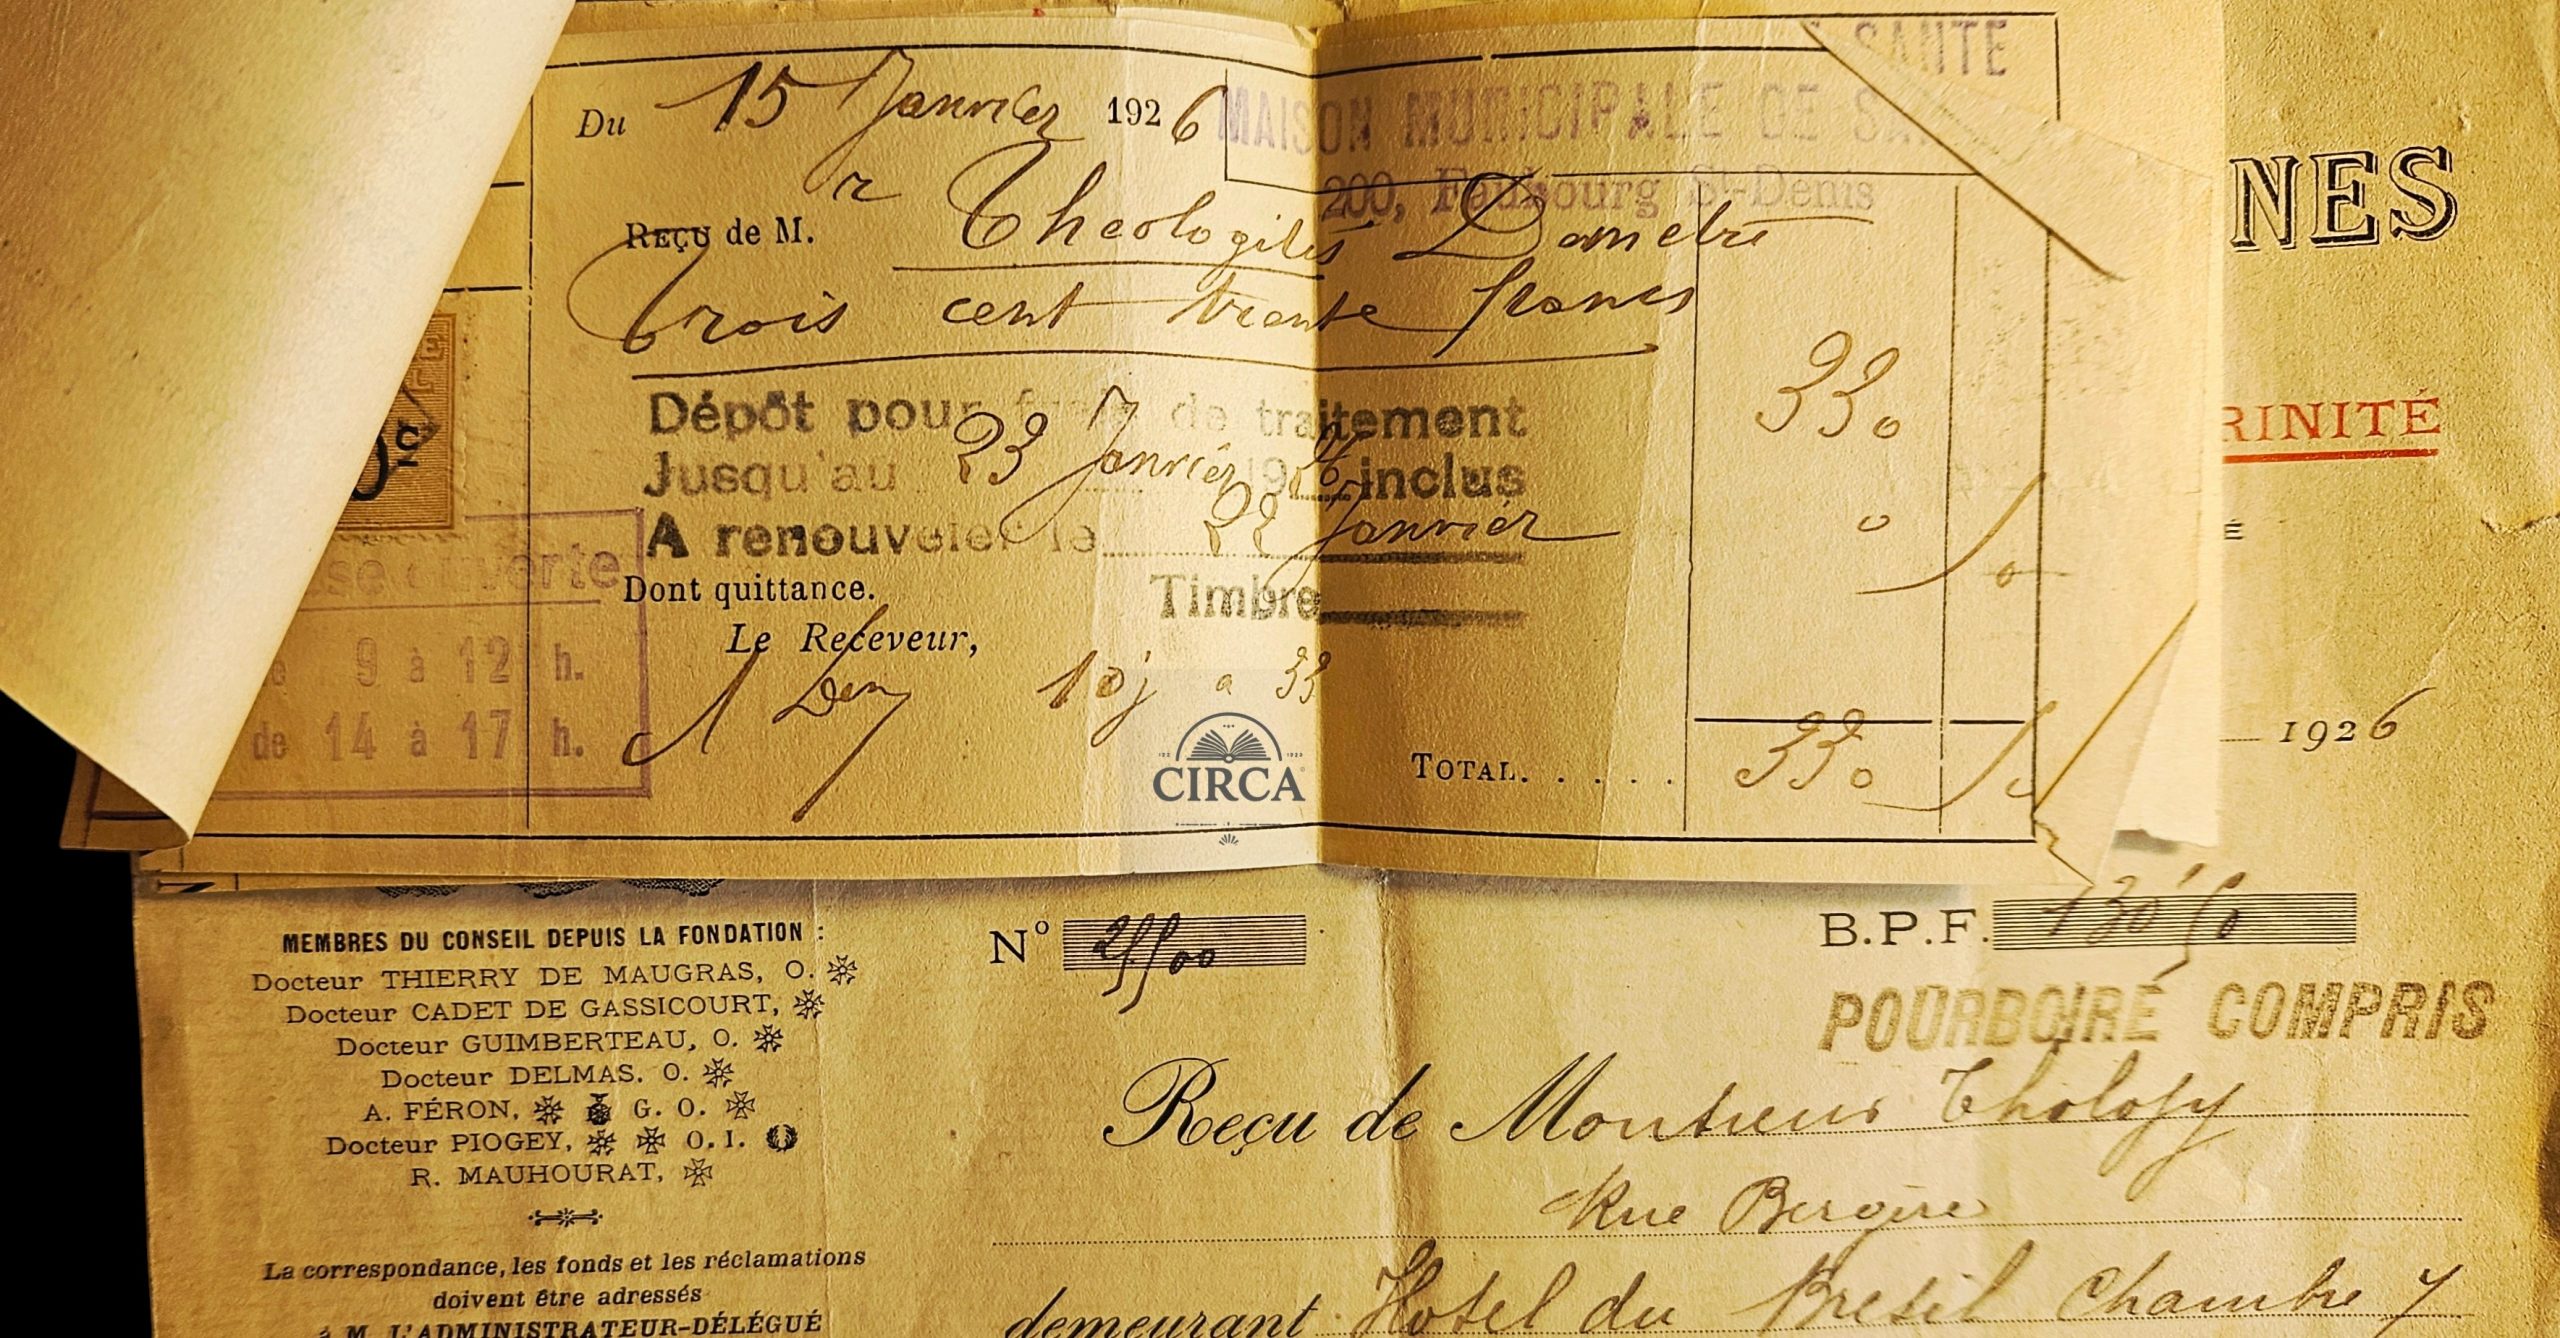 SANTE
MAISON MUNICIPALE DE
200, Faubourg St-Denis
Du 15 Janvier 1926
REÇU de M. r Theologitis Demetre
Trois cent trente francs
330
Dépôt pour frais de traitement
Jusqu'au 23 Janvier 1926 inclus
A renouveler le 22 Janvier
Dont quittance.
Timbre
Le Receveur,
10 j a 33
TOTAL. . . . . 330
se ouverte
de 9 à 12 h.
de 14 à 17 h.
CIRCA
NES
RINITÉ
É
1926
MEMBRES DU CONSEIL DEPUIS LA FONDATION :
Docteur THIERRY DE MAUGRAS, O.
Docteur CADET DE GASSICOURT,
Docteur GUIMBERTEAU, O.
Docteur DELMAS. O.
A. FÉRON, G. O.
Docteur PIOGEY, O. I.
R. MAUHOURAT,
La correspondance, les fonds et les réclamations
doivent être adressés
à M. L'ADMINISTRATEUR-DÉLÉGUÉ
N°
B.P.F.
POURBOIRE COMPRIS
Reçu de Monsieur Tholofy
Rue Bergère
demeurant Hotel du Bresil Chambre 7